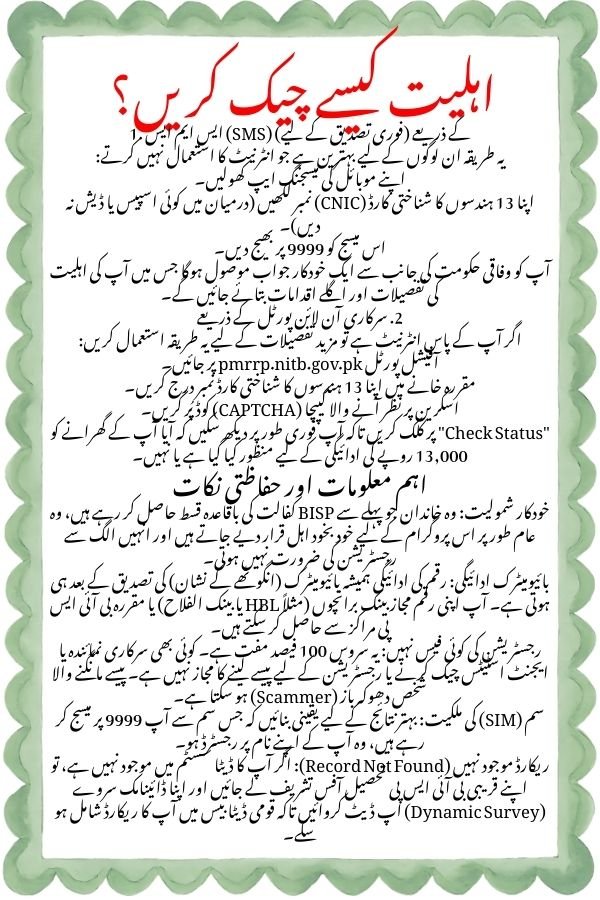 اہلیت کیسے چیک کریں؟
1. ایس ایم ایس (SMS) کے ذریعے (فوری تصدیق کے لیے)
یہ طریقہ ان لوگوں کے لیے بہترین ہے جو انٹرنیٹ کا استعمال نہیں کرتے:
اپنے موبائل کی میسجنگ ایپ کھولیں۔
اپنا 13 ہندسوں کا شناختی کارڈ (CNIC) نمبر لکھیں (درمیان میں کوئی اسپیس یا ڈیش نہ
دیں)۔
اس میسج کو 9999 پر بھیج دیں۔
آپ کو وفاقی حکومت کی جانب سے ایک خودکار جواب موصول ہوگا جس میں آپ کی اہلیت
کی تفصیلات اور اگلے اقدامات بتائے جائیں گے۔
2. سرکاری آن لائن پورٹل کے ذریعے
اگر آپ کے پاس انٹرنیٹ ہے تو مزید تفصیلات کے لیے یہ طریقہ استعمال کریں:
آفیشل پورٹل pmrrp.nitb.gov.pk پر جائیں۔
مقررہ خانے میں اپنا 13 ہندسوں کا شناختی کارڈ نمبر درج کریں۔
اسکرین پر نظر آنے والا کیپچا (CAPTCHA) کوڈ پُر کریں۔
"Check Status" پر کلک کریں تاکہ آپ فوری طور پر دیکھ سکیں کہ آیا آپ کے گھرانے کو
13,000 روپے کی ادائیگی کے لیے منظور کیا گیا ہے یا نہیں۔
اہم معلومات اور حفاظتی نکات
خودکار شمولیت: وہ خاندان جو پہلے سے BISP کفالت کی باقاعدہ قسط حاصل کر رہے ہیں، وہ
عام طور پر اس پروگرام کے لیے خود بخود اہل قرار دیے جاتے ہیں اور انہیں الگ سے
رجسٹریشن کی ضرورت نہیں ہوتی۔
بائیومیٹرک ادائیگی: رقم کی ادائیگی ہمیشہ بائیومیٹرک (انگوٹھے کے نشان) کی تصدیق کے بعد ہی
ہوتی ہے۔ آپ اپنی رقم مجاز بینک برانچوں (مثلاً HBL یا بینک الفلاح) یا مقررہ بی آئی ایس
پی مراکز سے حاصل کر سکتے ہیں۔
رجسٹریشن کی کوئی فیس نہیں: یہ سروس 100 فیصد مفت ہے۔ کوئی بھی سرکاری نمائندہ یا
ایجنٹ اسٹیٹس چیک کرنے یا رجسٹریشن کے لیے پیسے لینے کا مجاز نہیں ہے۔ پیسے مانگنے والا
شخص دھوکہ باز (Scammer) ہو سکتا ہے۔
سم (SIM) کی ملکیت: بہتر نتائج کے لیے یقینی بنائیں کہ جس سم سے آپ 9999 پر میسج کر
رہے ہیں، وہ آپ کے اپنے نام پر رجسٹرڈ ہو۔
ریکارڈ موجود نہیں (Record Not Found): اگر آپ کا ڈیٹا سسٹم میں موجود نہیں ہے، تو
اپنے قریبی بی آئی ایس پی تحصیل آفس تشریف لے جائیں اور اپنا ڈائینامک سروے
(Dynamic Survey) اپ ڈیٹ کروائیں تاکہ قومی ڈیٹا بیس میں آپ کا ریکارڈ شامل ہو
سکے۔